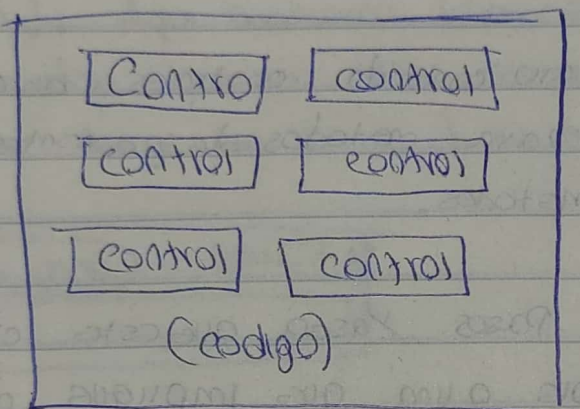 Contro control
control control
control control
(codigo)